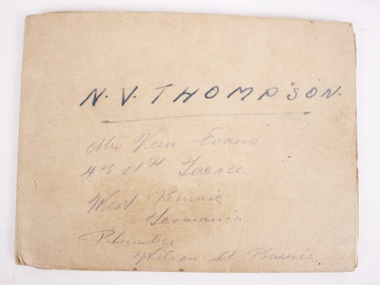 N. V. THOMPSON.
Mrs Vera Evans
Terrace
West Burnie
Tasmania
Plumber
Wilson St Burnie